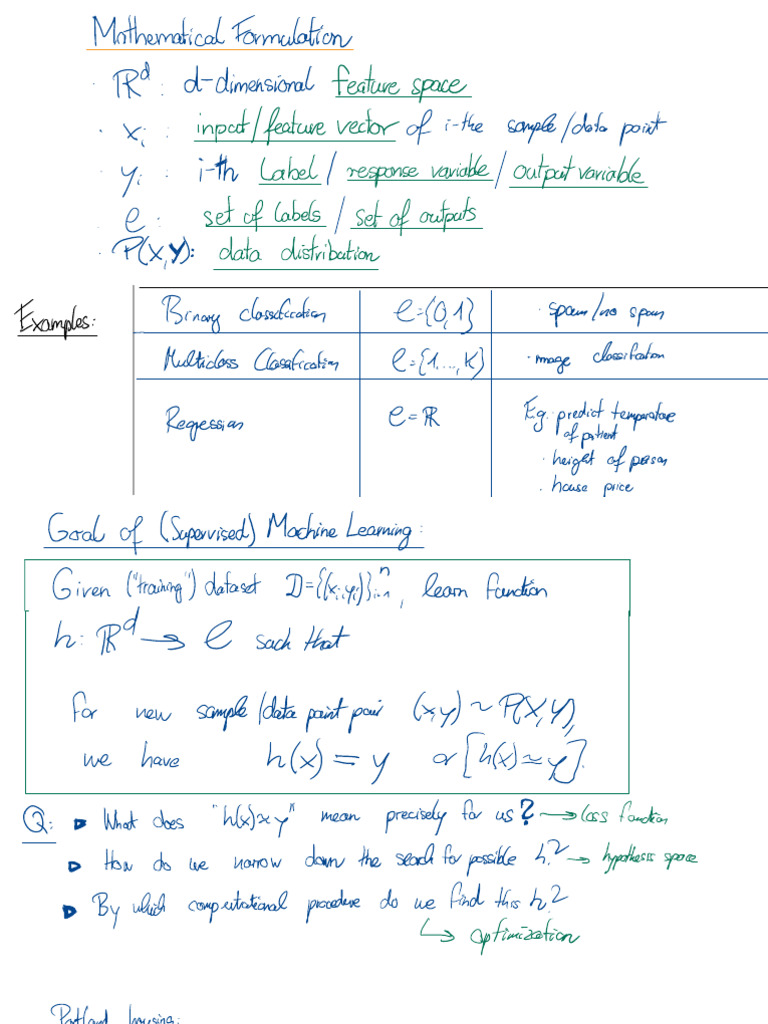 Mathematical Formulation
· ℝᵈ: d-dimensional feature space
· xᵢ : input/feature vector of i-the sample/data point
· yᵢ : i-th Label / response variable / output variable
· 𝒞 : set of labels / set of outputs
· P(X,Y): data distribution
Examples:
Binary classification 𝒞={0,1} · spam/no spam
Multiclass Classification 𝒞={1...,K} · image classification
Regression 𝒞=ℝ E.g. predict temperature
of patient
· height of person
· house price
Goal of (Supervised) Machine Learning:
Given ("training") dataset D={(xᵢ,yᵢ)}ᵢ₌₁ⁿ, learn function
h: ℝᵈ → 𝒞 such that
for new sample/data point pair (x,y) ~ P(X,Y),
we have h(x) = y or [h(x)≃y].
Q: ▶ What does "h(x)≈y" mean precisely for us? → loss function
▶ How do we narrow down the search for possible h? → hypothesis space
▶ By which computational procedure do we find this h?
↳ optimization
Portland housing: